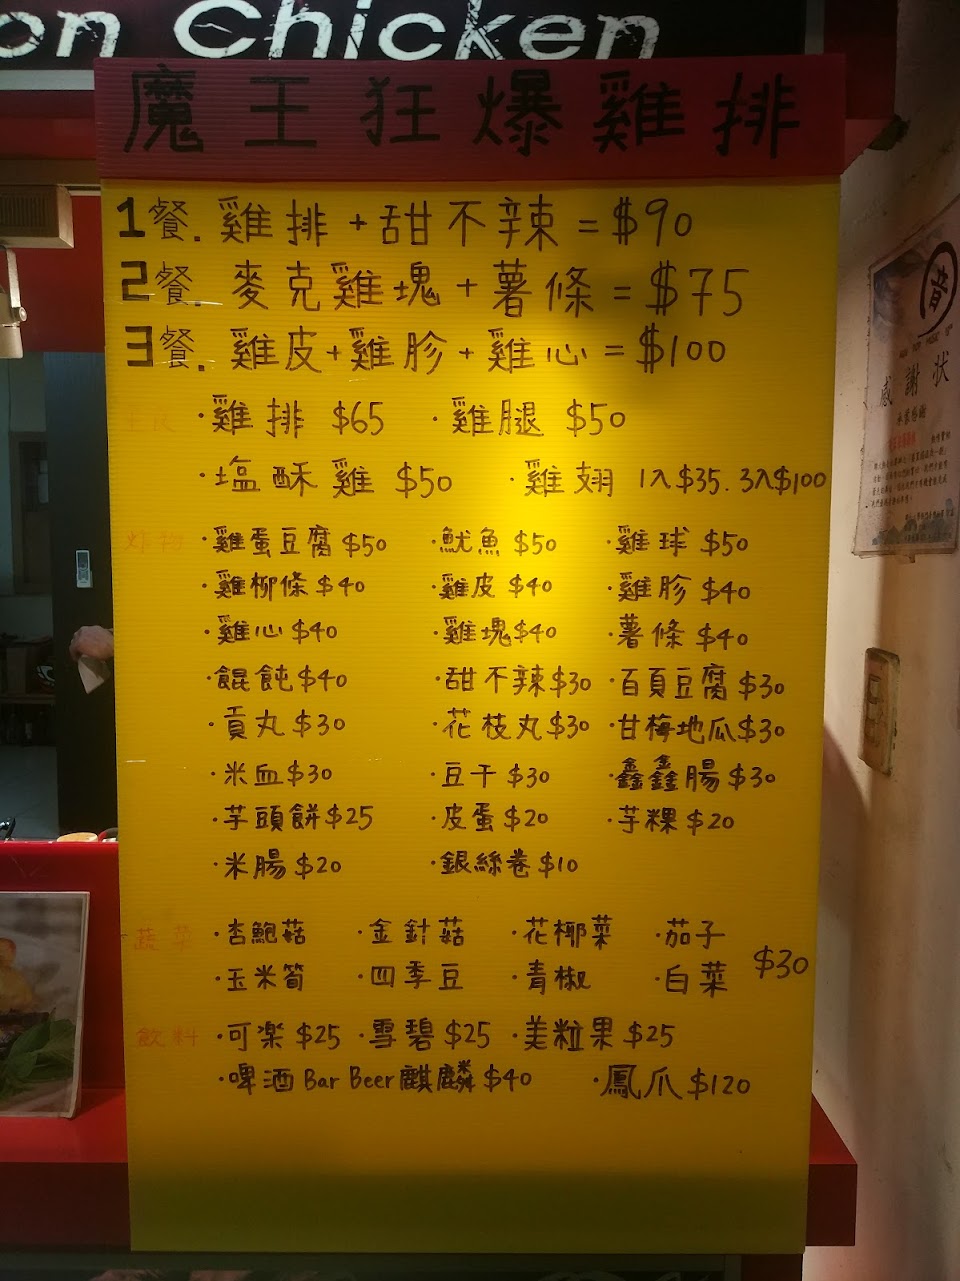 on Chicken
魔王狂爆雞排
1餐. 雞排+甜不辣=$90
2餐. 麥克雞塊+薯條=$75
3餐. 雞皮+雞胗+雞心=$100
·雞排 $65 ·雞腿 $50
·塩酥雞 $50 ·雞翅 1入$35. 3入$100
炸物 ·雞蛋豆腐 $50 ·魷魚 $50 ·雞球 $50
·雞柳條 $40 ·雞皮 $40 ·雞胗 $40
·雞心 $40 ·雞塊 $40 ·薯條 $40
·餛飩 $40 ·甜不辣 $30 ·百頁豆腐 $30
·貢丸 $30 ·花枝丸 $30 ·甘梅地瓜 $30
·米血 $30 ·豆干 $30 ·鑫鑫腸 $30
·芋頭餅 $25 ·皮蛋 $20 ·芋粿 $20
·米腸 $20 ·銀絲卷 $10
蔬菜 ·杏鮑菇 ·金針菇 ·花椰菜 ·茄子
·玉米筍 ·四季豆 ·青椒 ·白菜 $30
飲料 ·可楽 $25 ·雪碧 $25 ·美粒果 $25
·啤酒 Bar Beer 麒麟 $40 ·鳳爪 $120
昔
感謝状